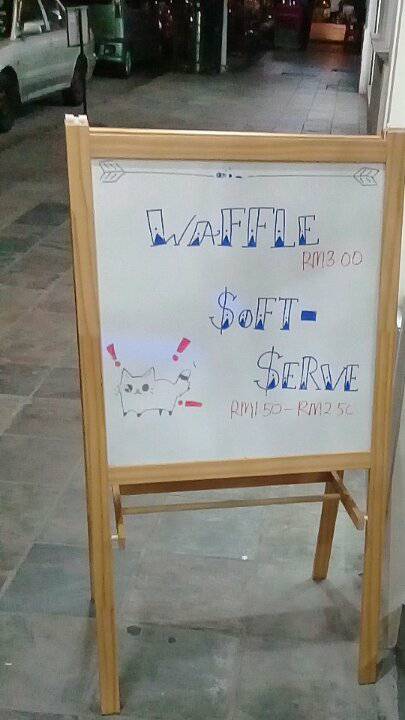 WAFFLE
RM3 00
SOFT-
SERVE
RM1 50 - RM2 50